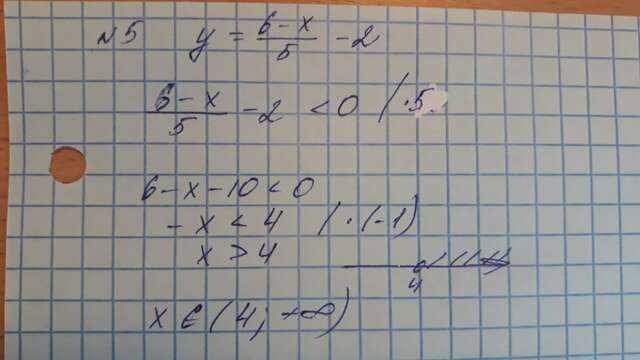 №5 y = (6-x)/5 - 2
(6-x)/5 - 2 < 0 / ·5
6-x-10<0
-x < 4 / ·(-1)
x > 4
4
x ∈ (4; +∞)